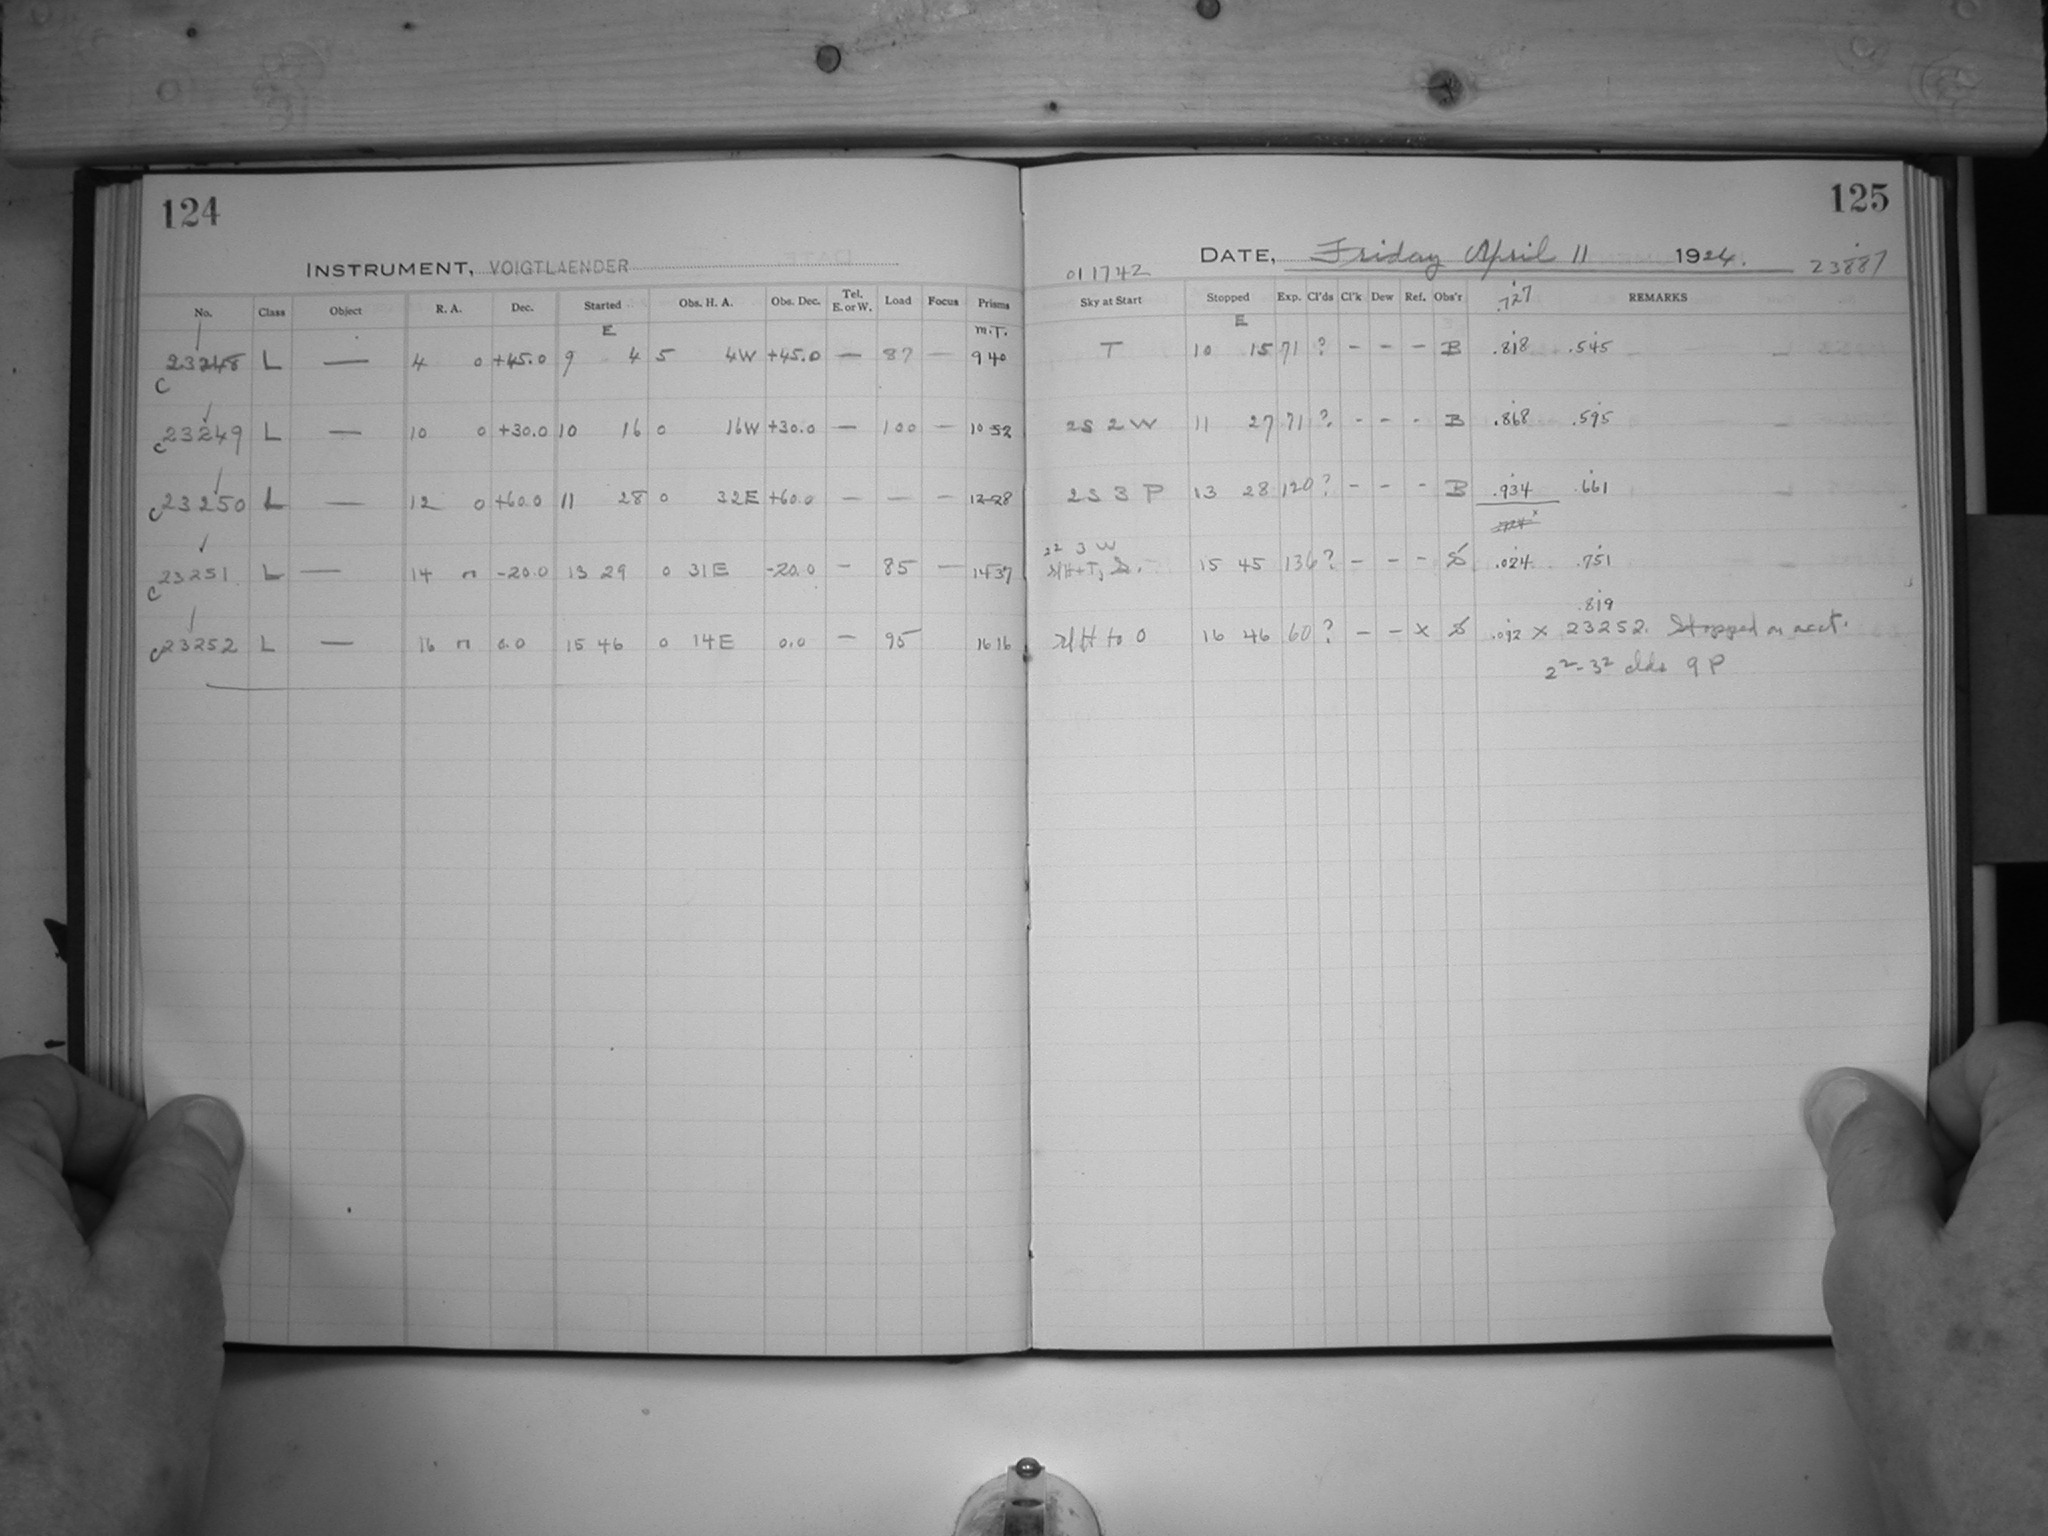 124
INSTRUMENT, VOIGTLAENDER
No. Class Object R. A. Dec. Started Obs. H. A. Obs. Dec. Tel. E. or W. Load Focus Prisms
E m.T.
23248 L — 4 0 +45.0 9 4 5 4W +45.0 — 87 — 9 40
C
C23249 L — 10 0 +30.0 10 16 0 16W +30.0 — 100 — 10 52
C23250 L — 12 0 +60.0 11 28 0 32E +60.0 — — — 12 28
C23251 L — 14 n -20.0 13 29 0 31E -20.0 — 85 — 14 37
C23252 L — 16 n 0.0 15 46 0 14E 0.0 — 95 16 16
125
DATE, Friday April 11 1924. 23887
011742
Sky at Start Stopped Exp. Cl'ds Cl'k Dew Ref. Obs'r .727 REMARKS
E
T 10 15 71 ? - - - B .818 .545
2S 2 W 11 27 71 ? - - - B .868 .595
2S 3 P 13 28 120 ? - - - B .934 .661
2² 3 W
15 45 136 ? - - - S .024 .751
.819
to 0 16 46 60 ? - - x S .092 x 23252. Stopped on acct.
2²-3² clds 9 P